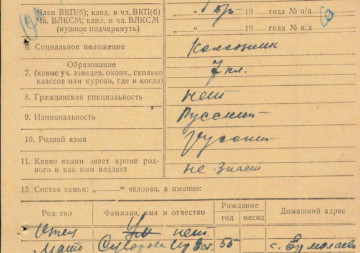 Член ВКП(б); канд. в чл. ВКП(б)
Чл. ВЛКСМ; канд. в чл. ВЛКСМ
(нужное подчеркнуть)
19 года № п/д.
19 года № п/д.
6. Социальное положение Колхозник
Образование
7. (какое уч. заведен. оконч., сколько классов или курсов, где и когда) 7 кл.
8. Гражданская специальность нет
9. Национальность Русский
10. Родной язык русский
11. Какие языки знает кроме родного и как ими владеет не знает
12. Состав семьи: „——" человек, а именно:
Родство Фамилия, имя и отчество Рождение год месяц Домашний адрес
Отец нет
Мать Суворова 55 с. Ермолаево